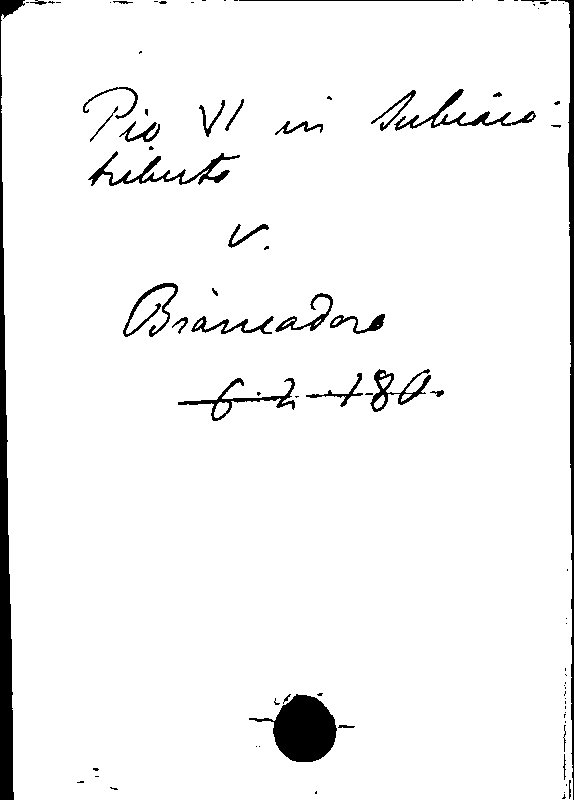 Pio VI in Subiaco -
tributo
v.
Brancadoro
6. 2. 180.